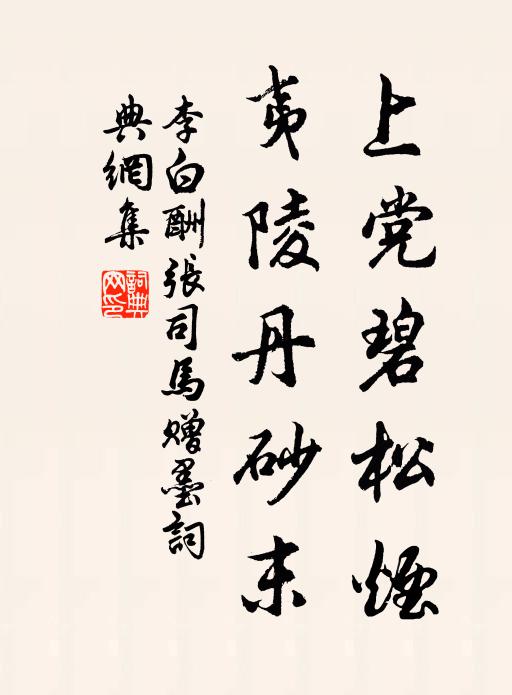 上党碧松煙
夷陵丹砂末
李白酬張司馬贈墨詞
典網集
詞典網印